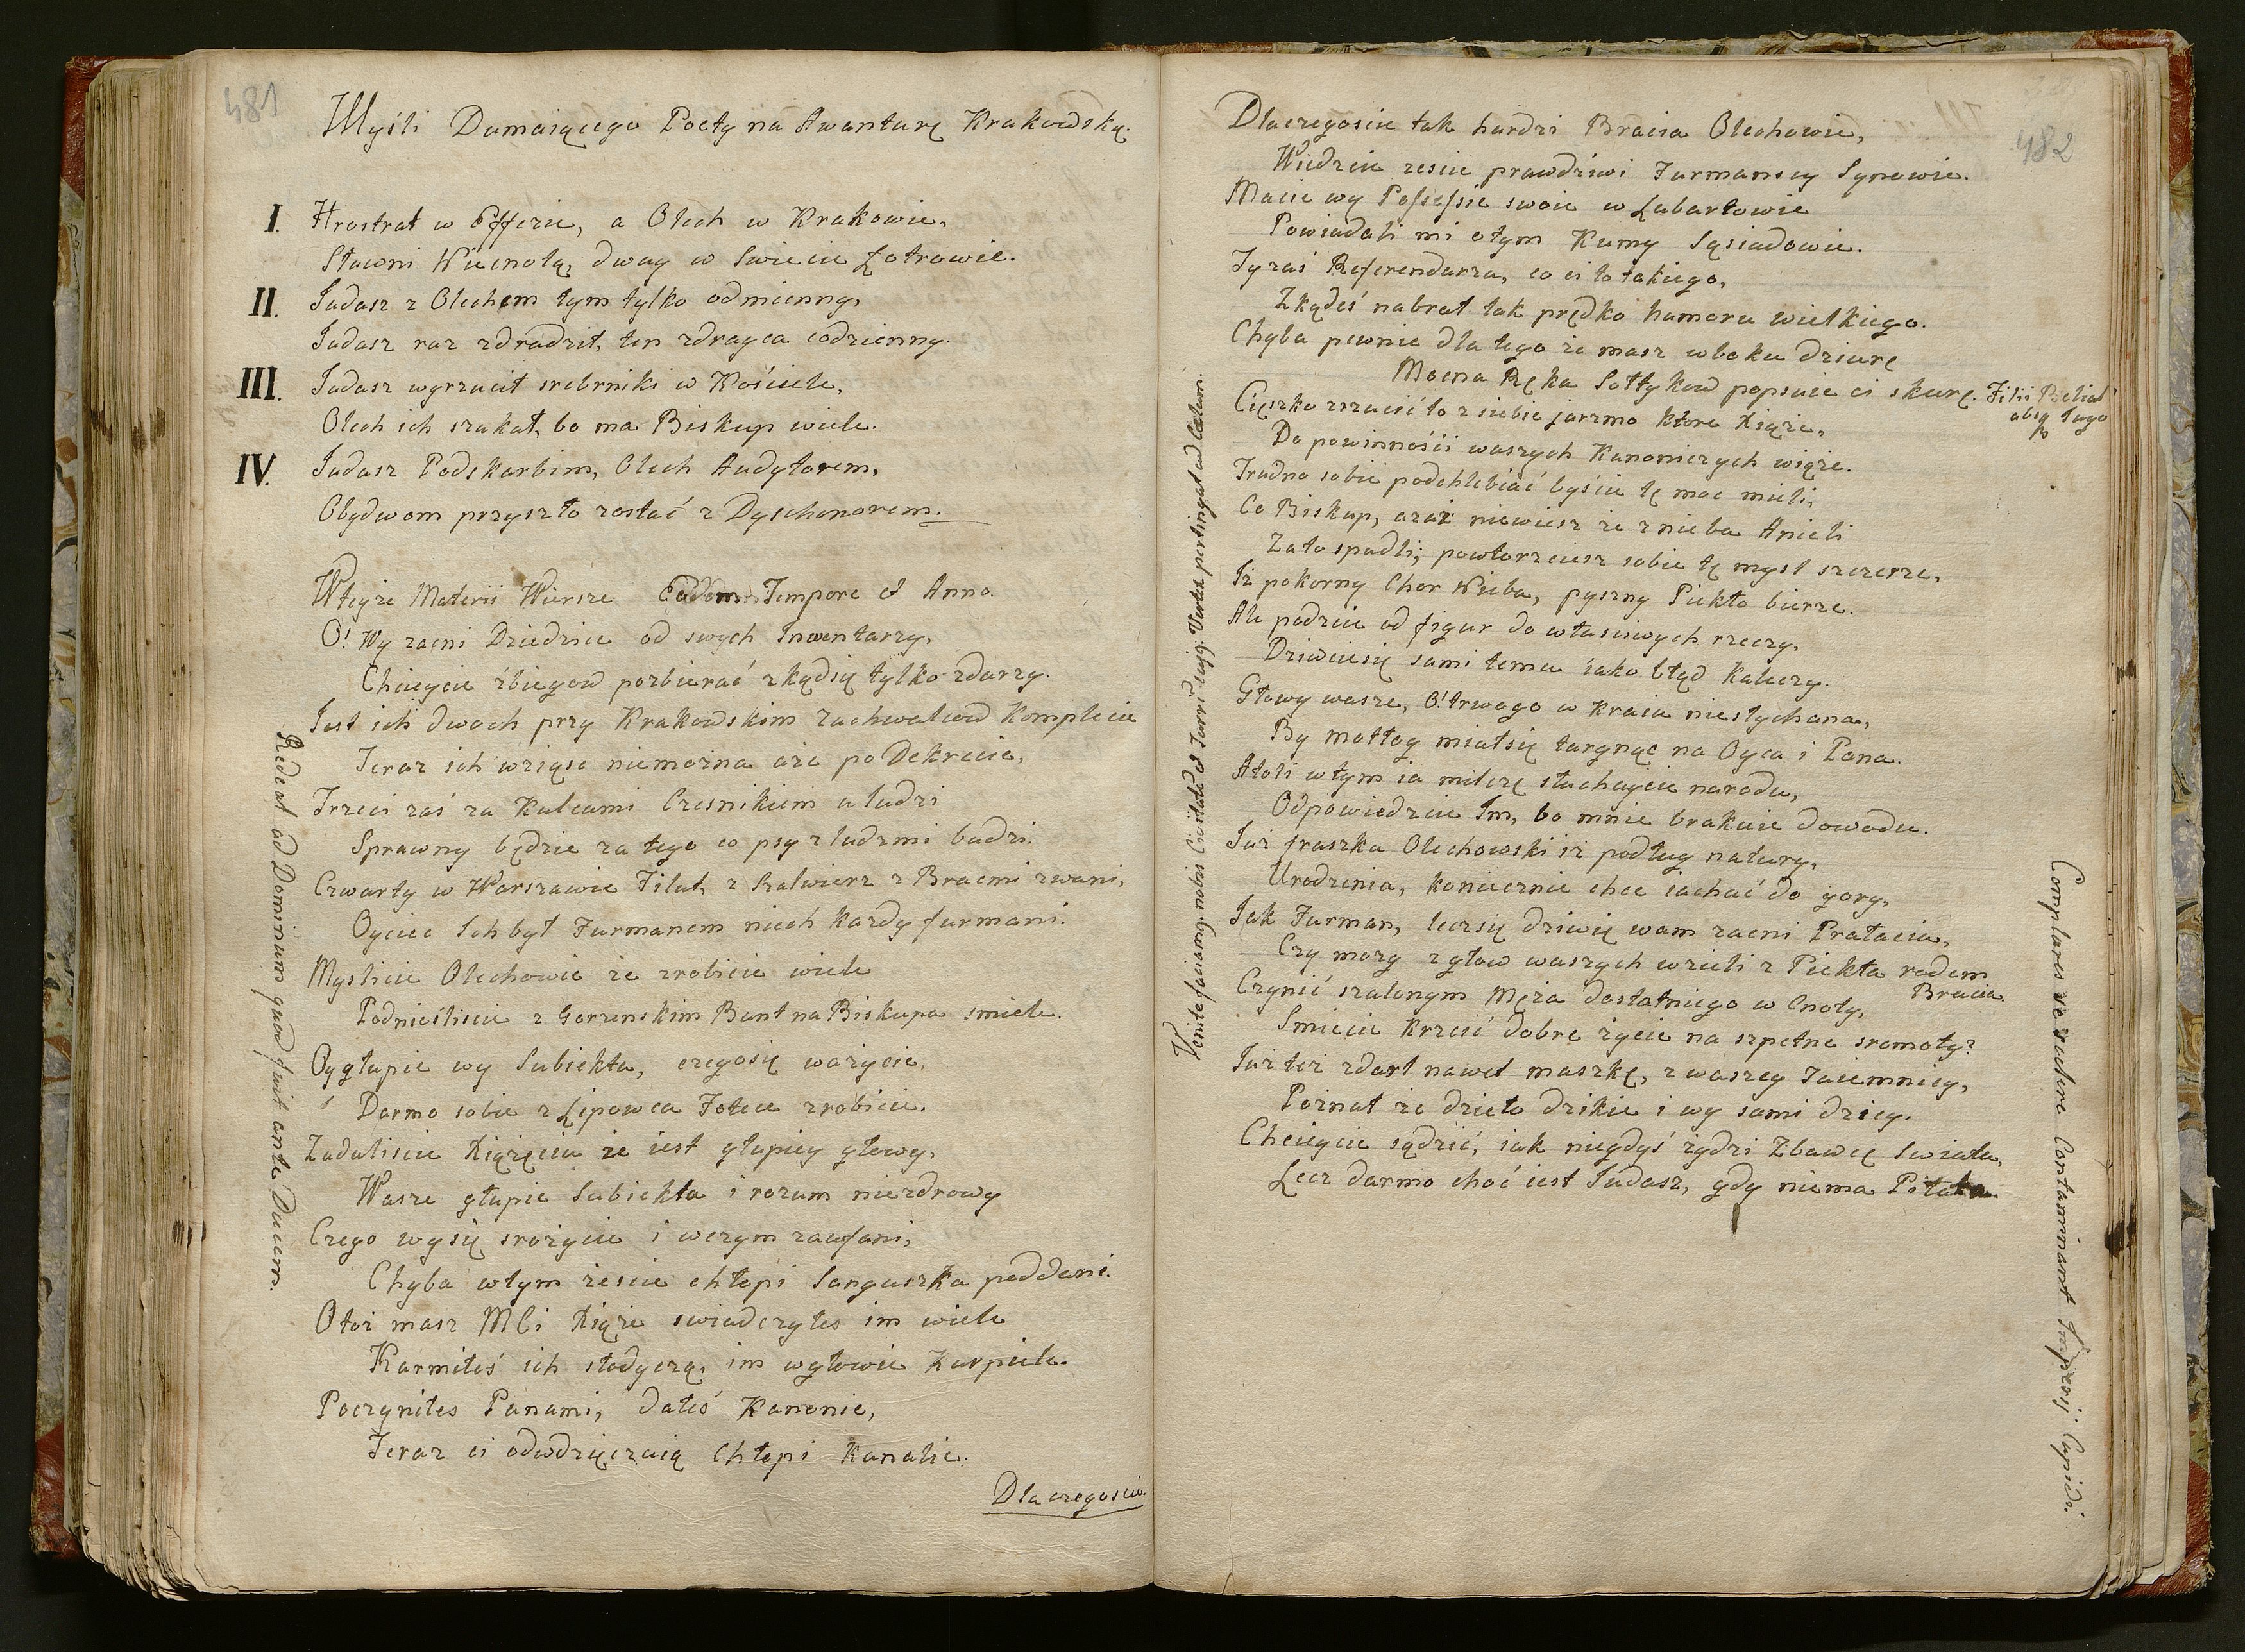 481
Myśli Dumaiącego Poety na Awanturę Krakowską.
I. Hrostrat w Effezie, a Olech w Krakowie,
Sławni Niecnotą, dway w Swiecie Łotrowie.
II. Judasz z Olechem tym tylko odmienny,
Judasz raz zdradził, ten zdrayca codzienny.
III. Judasz wyrzucił srebrniki w Kościele,
Olech ich szukał, bo ma Biskup wiele.
IV. Judasz Podskarbim, Olech Audytorem,
Obydwom przyszło zostać z Dyschonorem.
Wteyże Materii Wiersze Eadem Tempore et Anno.
O! Wy zacni Dziedzice od swych Inwentarzy,
Chcieycie zbiegow pozbierać zkądsię tylko zdarzy.
Jest ich dwoch przy Krakowskim zuchwalcow Komplecie
Teraz ich wziąsc niemożna aże po Dekrecie,
Trzeci zaś za Kulcami Czesnikiem u ludzi
Sprawny będzie za tego co psy z ludzmi budzi.
Czwarty w Warszawie Filut, z Szalwierz z Bracmi zwani,
Oyciec Ich był Furmanem niech każdy furmani.
Myslicie Olechowie że zrobicie wiele
Podnieśliscie z Gorzenskim Bunt na Biskupa smiele.
Oy głupie wy Subiekta, czegosię ważycie,
Darmo sobie z Lipowca Fotece zrobicie.
Zadaliscie Xiążęciu że iest głupiey głowy,
Wasze głupie Subiekta i rozum niezdrowy
Czego wysię srożycie i wczym zaufani,
Chyba wtym żescie chłopi Sanguszka poddani.
Otoż masz Mci Xiąże swiadczyłes im wiele
Karmiłeś ich słodyczą, im wgłowie Karpiele.
Poczyniłes Panami, dałeś Kanonie,
Teraz ci odwdzięczaią Chłopi Kanalie.
Dla czegoscie
Redeat ad Dominum quod fuit ante Ducem.
482
Dlaczegoscie tak hardzi Bracia Olechowie,
Wiedzcie zescie prawdziwi Furmanscy Synowie.
Macie wy Possessie swoie w Lubartowie
Powiadali mi otym Kumy Sąsiadowie.
Ty zaś Referendarzu, co ci to takiego,
Zkądeś nabrał tak prędko humoru wielkiego.
Chyba pewnie dla tego że masz wboku dziurę
Mocna Ręka Sołtykow popsuie ci skurę. Filii Belial
absq Iugo
Cięszko zrzucić to z siebie jarzmo Ktore Xiąże,
Do powinności waszych Kanoniczych wiąże.
Trudno sobie podchlebiać byście tę moc mieli,
Co Biskup, azaż niewiesz że z nieba Anieli
Zato spadli; powtorzciesz sobie tę mysl szczerze,
Iż pokorny Chor Nieba, pyszny Piekło bierze.
Ale podzcie od figur do własciwych rzeczy,
Dziwciesię sami temu iako błąd Kaleczy.
Głowy wasze, O! trwogo w Kraiu niesłychana,
By motłog miałsię targnąc na Oyca i Pana.
Atoli wtym ia milczę słuchaycie narodu,
Odpowiedzcie Im, bo mnie brakuie dowodu.
Juz fraszka Olechowski iż podług natury,
Urodzenia, koniecznie chce iachać do gory,
Jak Furman, leczsię dziwię wam zacni Prałacia,
Czy mozg z głow waszych wzieli z Piekła rodem
Bracia.
Czynić szalonym Męża dostatniego w Cnoty,
Smiecie Krzcić dobre życie na szpetne sromoty?
Już też zdarł nawet maszkę, z waszey Taiemnicy,
Poznał że dzieło dzikie i wy sami dzicy.
Chcieycie sądzić, iak niegdyś żydzi Zbawcę Swiata,
Lecz darmo choć iest Judasz, gdy niema Piłata.
Venite faciamq. nobis Civitatē et Turrī cujq. Vertex pertingat ad Cælum.
Complures se scelere Contaminant Impresij Cupidi.